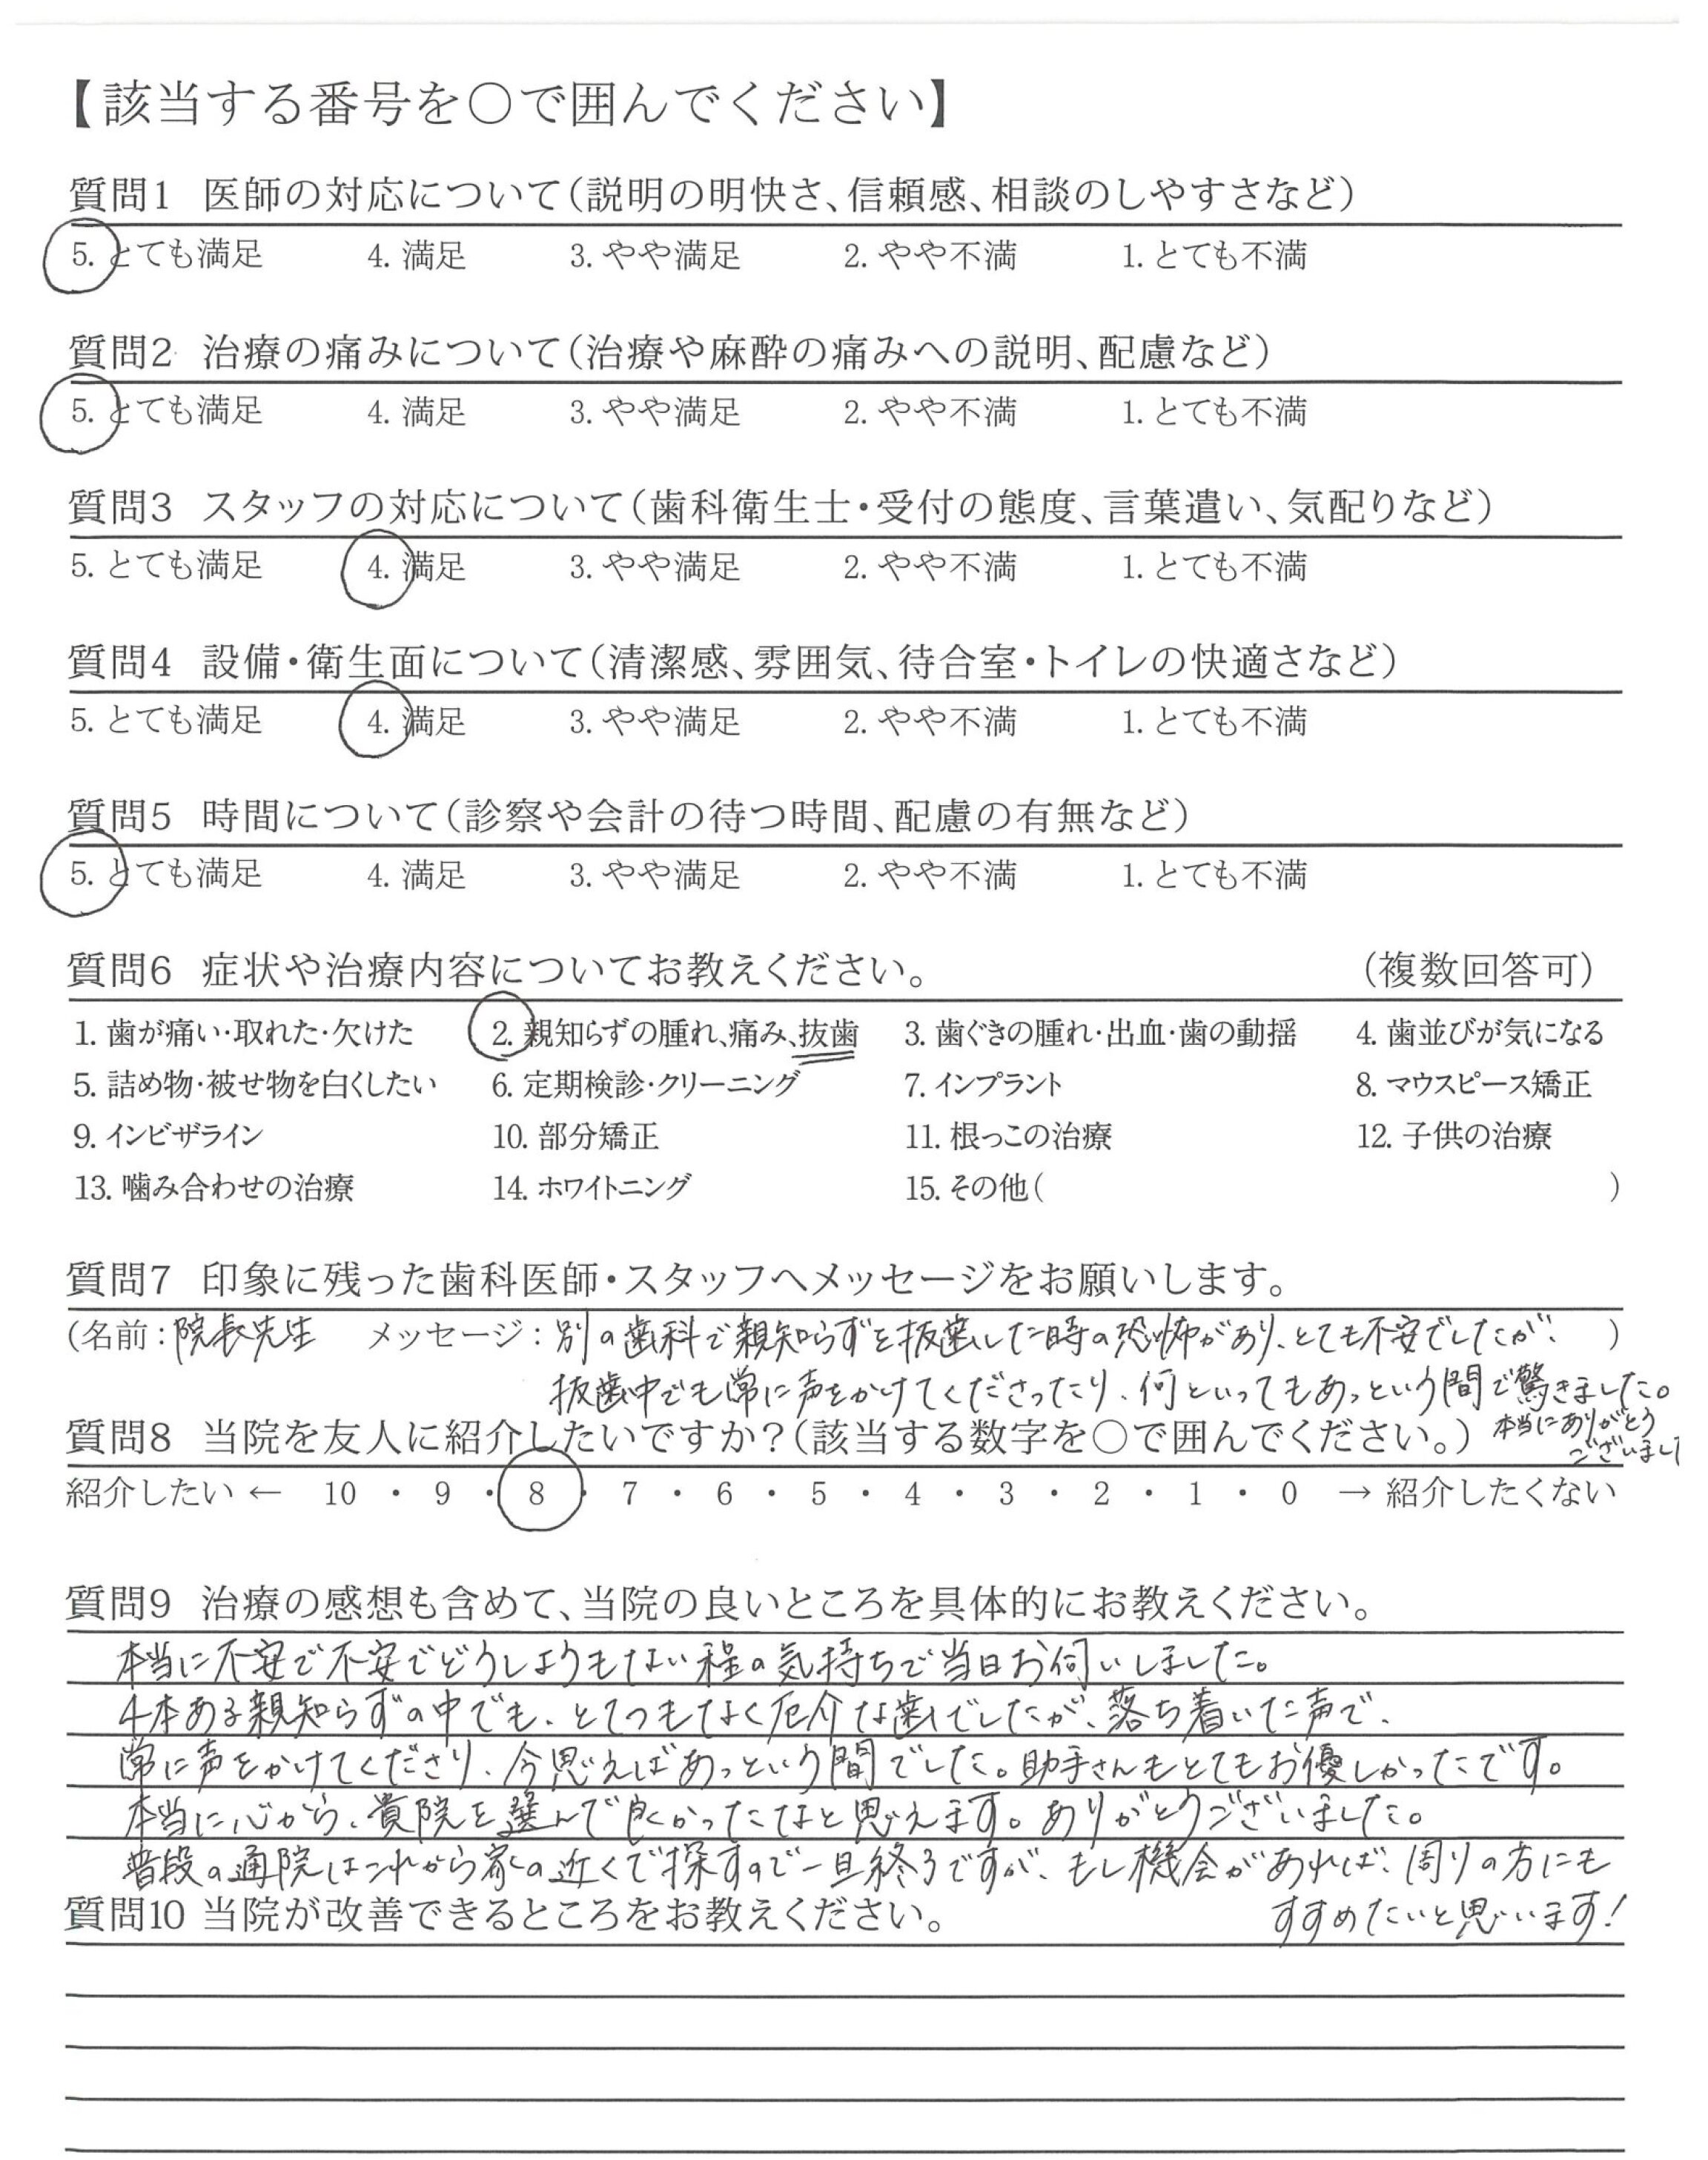 【該当する番号を○で囲んでください】
質問1 医師の対応について(説明の明快さ、信頼感、相談のしやすさなど)
5. とても満足 4. 満足 3. やや満足 2. やや不満 1. とても不満
質問2 治療の痛みについて(治療や麻酔の痛みへの説明、配慮など)
5. とても満足 4. 満足 3. やや満足 2. やや不満 1. とても不満
質問3 スタッフの対応について(歯科衛生士・受付の態度、言葉遣い、気配りなど)
5. とても満足 4. 満足 3. やや満足 2. やや不満 1. とても不満
質問4 設備・衛生面について(清潔感、雰囲気、待合室・トイレの快適さなど)
5. とても満足 4. 満足 3. やや満足 2. やや不満 1. とても不満
質問5 時間について(診察や会計の待つ時間、配慮の有無など)
5. とても満足 4. 満足 3. やや満足 2. やや不満 1. とても不満
質問6 症状や治療内容についてお教えください。 (複数回答可)
1. 歯が痛い・取れた・欠けた 2. 親知らずの腫れ、痛み、抜歯 3. 歯ぐきの腫れ・出血・歯の動揺 4. 歯並びが気になる
5. 詰め物・被せ物を白くしたい 6. 定期検診・クリーニング 7. インプラント 8. マウスピース矯正
9. インビザライン 10. 部分矯正 11. 根っこの治療 12. 子供の治療
13. 噛み合わせの治療 14. ホワイトニング 15. その他( )
質問7 印象に残った歯科医師・スタッフへメッセージをお願いします。
(名前:院長先生 メッセージ:別の歯科で親知らずを抜歯した時の恐怖があり、とても不安でしたが、 )
抜歯中でも常に声をかけてくださったり、何といってもあっという間で驚きました。
本当にありがとう
ございまし
質問8 当院を友人に紹介したいですか?(該当する数字を○で囲んでください。)
紹介したい ← 10 ・ 9 ・ 8 ・ 7 ・ 6 ・ 5 ・ 4 ・ 3 ・ 2 ・ 1 ・ 0 → 紹介したくない
質問9 治療の感想も含めて、当院の良いところを具体的にお教えください。
本当に不安で不安でどうしようもない程の気持ちで当日お伺いしました。
4本ある親知らずの中でも、とてつもなく厄介な歯でしたが、落ち着いた声で、
常に声をかけてくださり、今思えばあっという間でした。助手さんもとてもお優しかったです。
本当に心から、貴院を選んで良かったなと思えます。ありがとうございました。
普段の通院はこれから家の近くで探すので一旦終了ですが、もし機会があれば、周りの方にも
すすめたいと思います!
質問10 当院が改善できるところをお教えください。